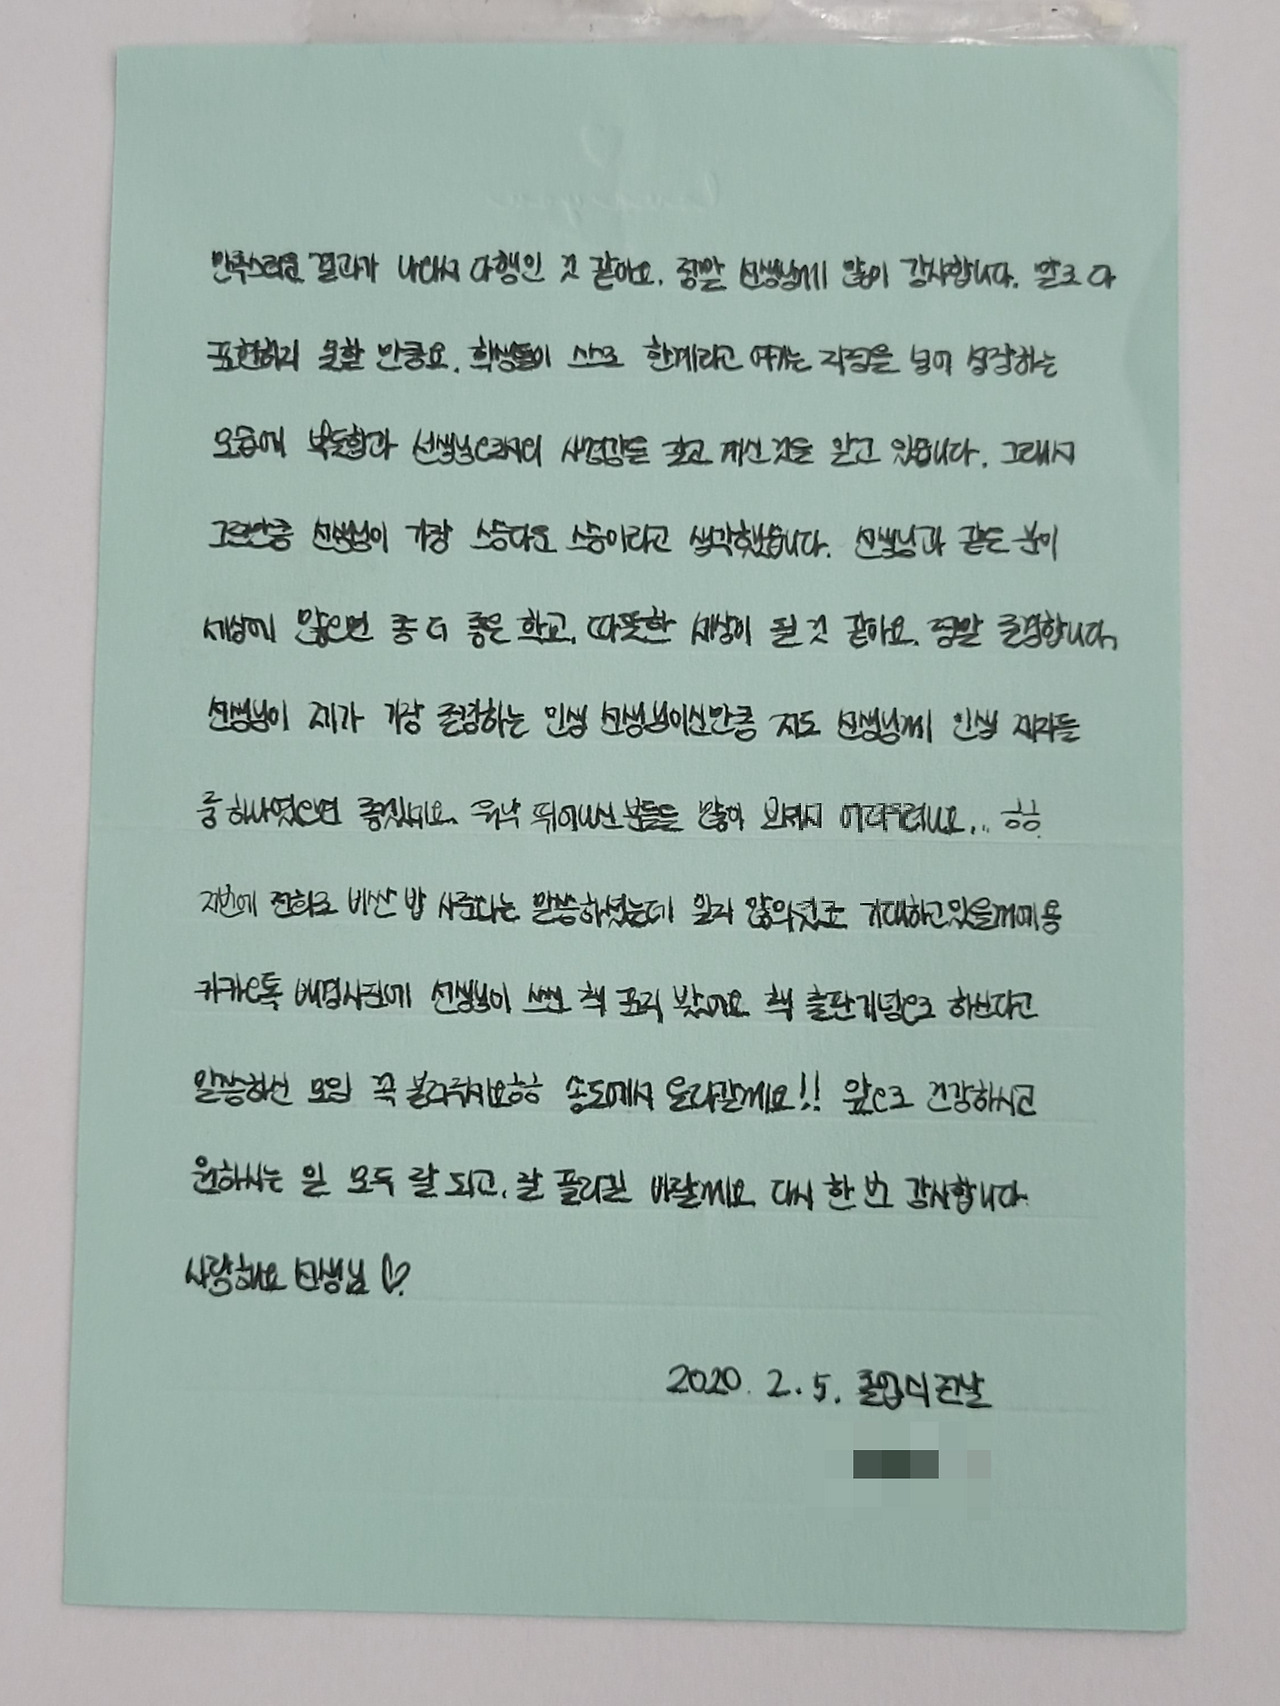 만족스러운 결과가 나와서 다행인 것 같아요. 정말 선생님께 많이 감사합니다. 말로 다
표현하지 못할 만큼요. 학생들이 스스로 한계라고 여기는 지점을 넘어 성장하는
모습에 뿌듯함과 선생님으로서의 사명감을 갖고 계신 것을 알고 있습니다. 그래서
그런만큼 선생님이 가장 스승다운 스승이라고 생각했습니다. 선생님과 같은 분이
세상에 많으면 좀 더 좋은 학교, 따뜻한 세상이 될 것 같아요. 정말 존경합니다.
선생님이 제가 가장 존경하는 인생 선생님이신만큼 저도 선생님께 인생 제자들
중 하나였으면 좋겠네요. 워낙 뛰어나신 분들을 많이 보셔서 어려우려나요... ㅎㅎ
저번에 전화로 비싼 밥 사준다는 말씀하셨는데 잊지 않으셨죠 기대하고있을꺼예용
카카오톡 배경사진에 선생님이 쓰신 책 표지 봤어요 책 출판기념으로 하신다고
말씀하신 모임 꼭 불러주세요ㅎㅎ 송도에서 올라갈게요!! 앞으로 건강하시고
원하시는 일 모두 잘 되고, 잘 풀리길 바랄게요 다시 한 번 감사합니다
사랑해요 선생님 ♡.
2020. 2. 5. 졸업식 전날